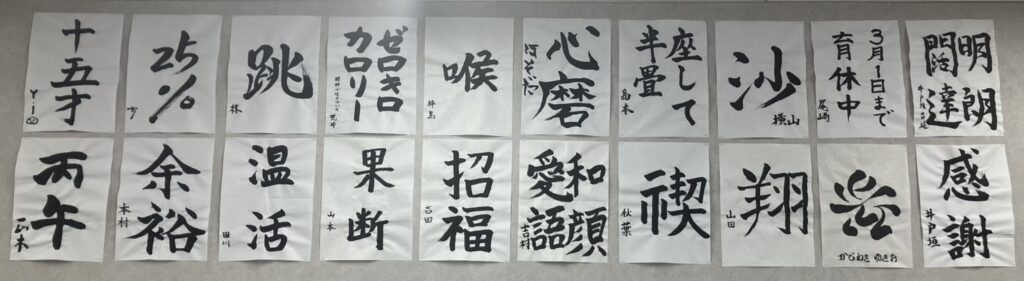 十五才
25%
跳
林
ゼロキロ
カロリー
喉
心磨
座して
半畳
島本
沙
横山
3月1日まで
育休中
尾崎
明朗
闊達
丙午
正木
余裕
本村
温活
田川
果断
山本
招福
吉田
和顔
愛語
吉村
禊
秋葉
翔
山田
感謝
井戸垣